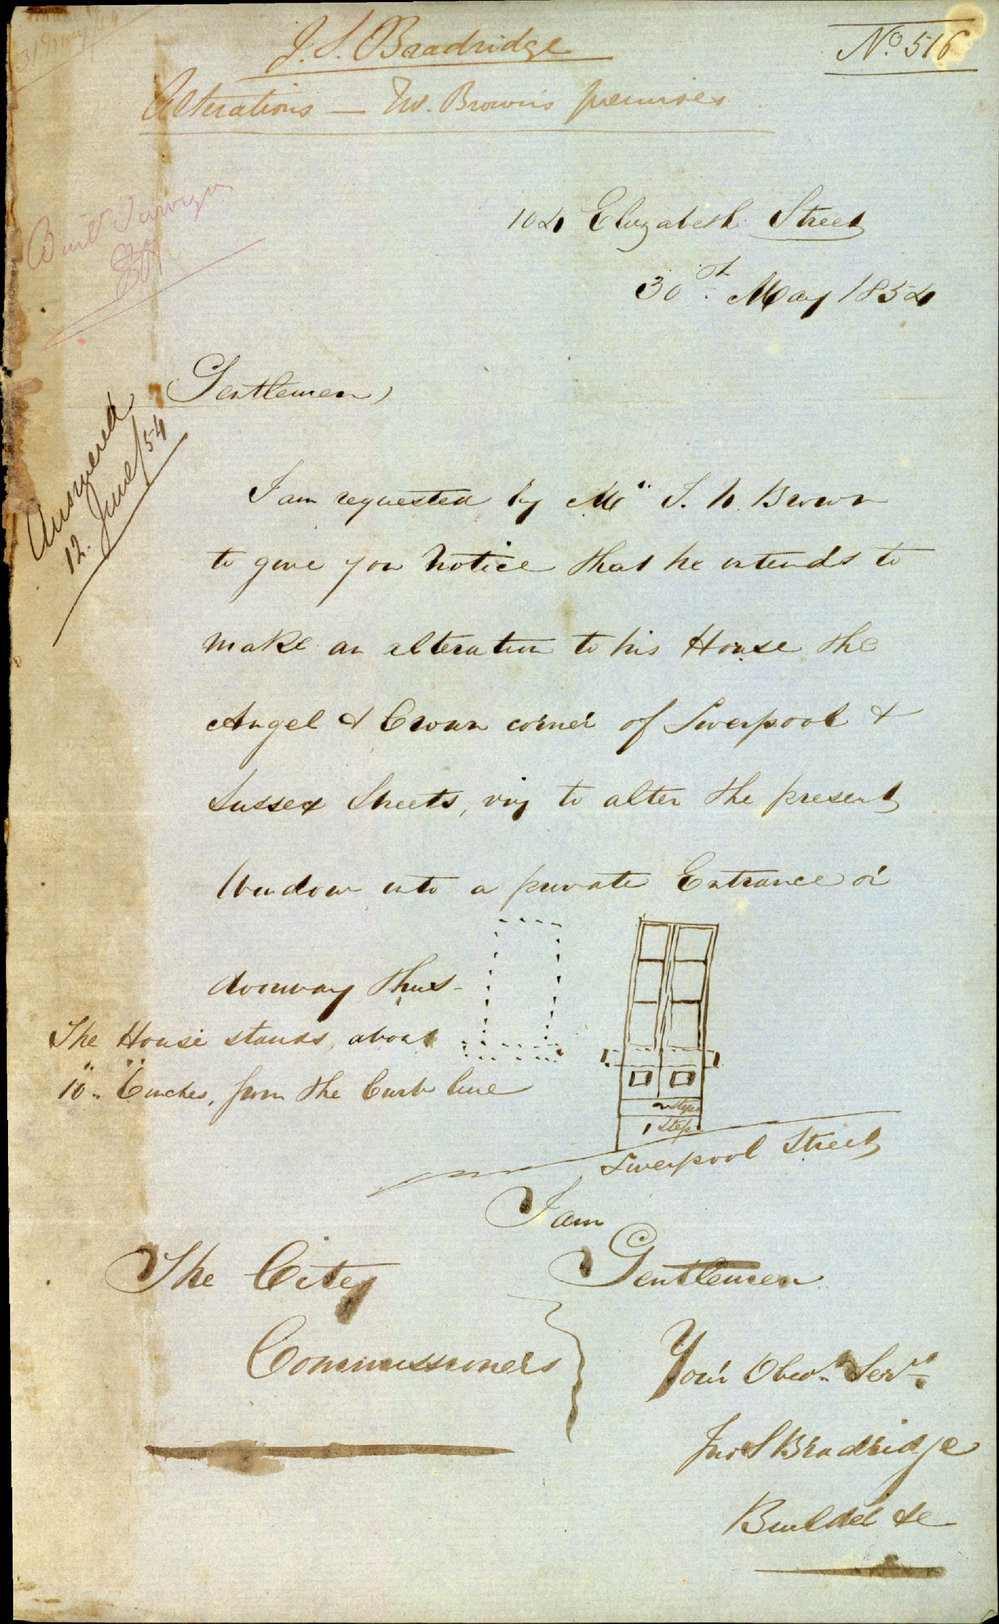 J. S. Bradridge
No. 516
Alterations — Mr. Brown's premises
31 May
104 Elizabeth Street
30th. May 1854
Answered
12. June/54
Gentlemen,
I am requested by Mr. T. W. Brown
to give you notice that he intends to
make an alteration to his House the
Angel & Crown corner of Liverpool &
Sussex Streets, viz to alter the present
Window into a private Entrance or
doorway thus-
The House stands, about
10.. Inches, from the Curb line
2 Step
1 Step
Liverpool Street
I am
Gentlemen
The City
Commissioners
Your Obedt. Servt.
Jno S Bradridge
Builder &c